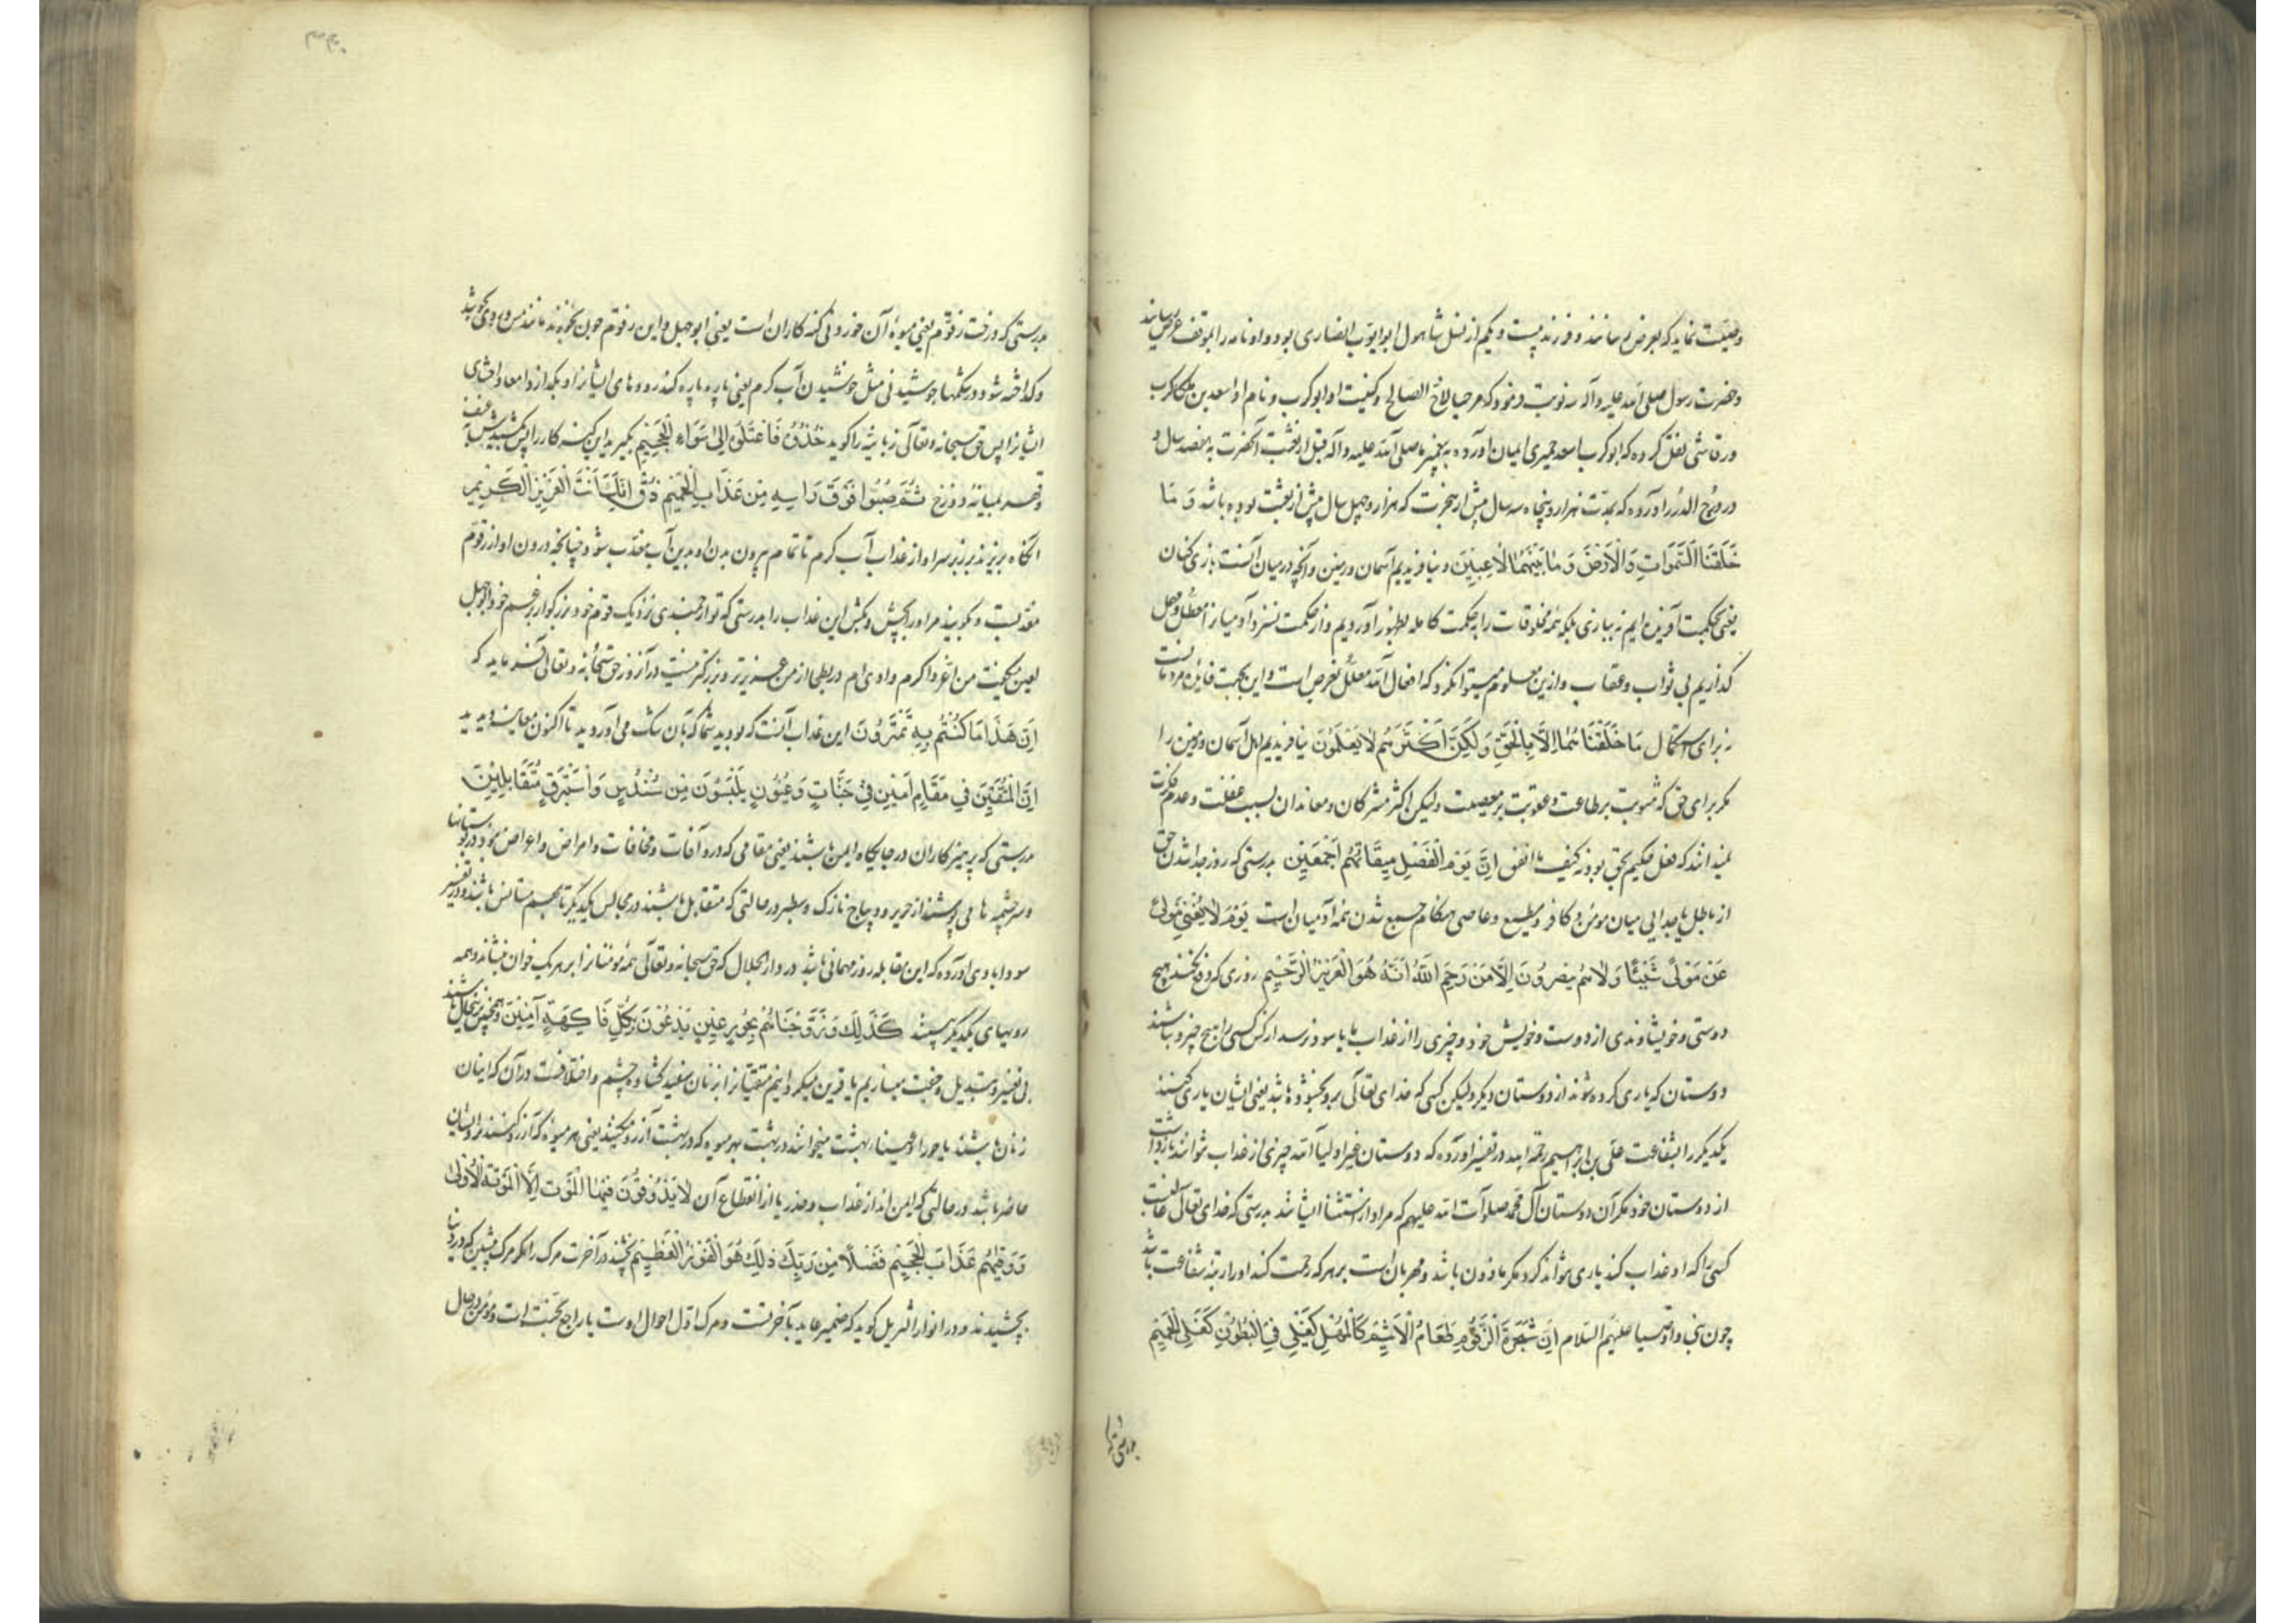 وصیت نماید که بعرض رسانند و فرزند بیست و یکم از نسل شامول ابو ایوب انصاری بود و او نامه را بموقف عرض رسانید
و حضرت رسول صلی الله علیه و آله سه نوبت فرمود که مرحبا بالاخ الصالح و کنیت او ابو کرب و نام او اسعد بن ملکیکرب
و رقاشی نقل کرده که ابو کرب اسعد حمیری ایمان آورده به پیغمبر ما صلی الله علیه و آله قبل از بعثت آنحضرت به هفصد سال و
در درج الدرر آورده که بمدت هزار و پنجاه و سه سال پیش از هجرت که هزار و چهل سال پیش از بعثت بوده باشد وَ مَا
خَلَقْنَا السَّمَوَاتِ وَالْاَرْضَ وَمَا بَيْنَهُمَا لَاعِبِينَ و نیافریدیم آسمان و زمین و آنچه درمیان آنست بازی کنان
یعنی بحکمت آفریده ایم نه ببازی بلکه همه مخلوقات را به حکمت کامله بظهور آوردیم و از حکمت نسزد آدمیان را معطل و مهمل
گذاریم بی ثواب و عقاب و ازین معلوم میتوان کرد که افعال الله معلل بغرض است و این بجهت فائده مردمانست
نه برای استکمال مَا خَلَقْنَاهُمَا اِلَّا بِالْحَقِّ وَلٰكِنَّ اَكْثَرَهُمْ لَا يَعْلَمُونَ نیافریدیم اهل آسمان و زمین را
مگر برای حق که مثوبت بر طاعت و عقوبت بر معصیت ولیکن اکثر مشرکان و معاندان بسبب غفلت و عدم فکرت
نمیدانند که فعل حکیم بحق بود نه کیف ما اتفق اِنَّ يَوْمَ الْفَصْلِ مِيقَاتُهُمْ اَجْمَعِينَ بدرستی که روز جدا شدن حق
از باطل یا جدایی میان مؤمن و کافر و مطیع و عاصی هنگام جمیع شدن همه آدمیان است يَوْمَ لَا يُغْنِي مَوْلًى
عَنْ مَوْلًى شَيْئًا وَلَا هُمْ يُنْصَرُونَ اِلَّا مَنْ رَحِمَ اللَّهُ اِنَّهُ هُوَ الْعَزِيزُ الرَّحِيمُ روزی که دفع نکند هیچ
دوستی و خویشاوندی از دوست و خویش خود چیزی را از عذاب یا سود نرسد از کس کسی را هیچ چیز و نباشند
دوستان که یاری کرده شوند از دوستان دیگر ولیکن کسی که خدای تعالی برو بخشوده باشد یعنی ایشان یاری کنند
یکدیگر را بشفاعت علی بن ابراهیم رحمه الله در تفسیر آورده که دوستان غیر اولیا الله چیزی از عذاب نتوانند بازداشت
از دوستان خود مگر آن دوستان آل محمد صلوات الله علیهم که مراد از استثنا ایشانند بدرستی که خدای تعالی غالبست
کسی را که او عذاب کند یاری نتواند کرد مگر ماذون باشد و مهربان است بر هر که رحمت کند او را رتبه شفاعت باشد
چون نبی و اوصیا علیهم السلام اِنَّ شَجَرَةَ الزَّقُّومِ طَعَامُ الْاَثِيمِ كَالْمُهْلِ يَغْلِي فِي الْبُطُونِ كَغَلْيِ الْحَمِيمِ
بدرستی که
بدرستی که درخت زقوم یعنی میوه آن خوردنی گنه کاران است یعنی ابو جهل و این زقوم چون بخورند مانند مس و روی بجوشد
و گداخته شود در شکمها جوشیدنی مثل جوشیدن آب گرم یعنی پاره پاره کند رودهای ایشانرا و بگدازد امعا و احشای
ایشانرا پس حق سبحانه و تعالی زبانیه را گوید خُذُوهُ فَاعْتِلُوهُ اِلَى سَوَاءِ الْجَحِيمِ بگیرید این گنه کار را پس بکشیدش بعنف
و قهر بمیانه دوزخ ثُمَّ صُبُّوا فَوْقَ رَاْسِهِ مِنْ عَذَابِ الْحَمِيمِ ذُقْ اِنَّكَ اَنْتَ الْعَزِيزُ الْكَرِيمُ
آنگاه بریزید بر زبر سر او از عذاب آب گرم تا تمام بیرون بدن او بدین آب معذب شود چنانچه درون او از زقوم
معذبست و بگویید مر او را بچش و بکش این عذاب را بدرستی که تو ارجمندی نزدیک قوم خود و بزرگوار بزعم خود ابو جهل
لعین میگفت من اعز و اکرم وادی ام در بطحا از من عزیزتر و بزرگتر نیست در آن روز حق سبحانه و تعالی فرماید که
اِنَّ هَذَا مَا كُنْتُمْ بِهِ تَمْتَرُونَ این عذاب آنست که بودید شما که بآن شک می آوردید تا اکنون معاینه دیدید
اِنَّ الْمُتَّقِينَ فِي مَقَامٍ اَمِينٍ فِي جَنَّاتٍ وَعُيُونٍ يَلْبَسُونَ مِنْ سُنْدُسٍ وَاِسْتَبْرَقٍ مُتَقَابِلِينَ
بدرستی که پرهیزکاران در جایگاه ایمن باشند یعنی مقامی که درو آفات و مخافات و امراض و اعراض نبود در بوستانها
و سرچشمه ها می پوشند از حریر و دیباج نازک و سطبر در حالتی که متقابل باشند در مجالس یکدیگر تا بهم مستانس باشند و در تفسیر
سورابادی آورده که این مقابله روز مهمانی باشد در دار الجلال که حق سبحانه و تعالی همه مؤمنانرا بر سر یک خوان بنشاند و همه
رویهای یکدیگر بینند كَذَلِكَ وَزَوَّجْنَاهُمْ بِحُورٍ عِينٍ يَدْعُونَ بِكُلِّ فَاكِهَةٍ آمِنِينَ و همچنین بی باشند
بی تغییر و تبدیل و جفت میسازیم یا قرین میگردانیم متقیانرا بزنان سفید گشاده چشم و اختلافست در آن که اینان
زنان باشند یا حور العین بهشت میخوانند در بهشت بهر میوه که در بهشت آرزو کنند یعنی هر میوه که آرزو کنند نزد ایشان
حاضر باشد در حالتی که ایمن اند از عذاب و ضرر یا از انقطاع آن لَا يَذُوقُونَ فِيهَا الْمَوْتَ اِلَّا الْمَوْتَةَ الْاُولَى
وَوَقَيهُمْ عَذَابَ الْجَحِيمِ فَضْلًا مِنْ رَبِّكَ ذَلِكَ هُوَ الْفَوْزُ الْعَظِيمُ نچشند در آخرت مرگ را مگر مرگ پیشین که در دنیا
بچشیدند و در انوار التنزیل گوید که ضمیر عاید بآخرتست و مرگ اول احوال اوست یا راجع بجنت است و مؤمن در حال